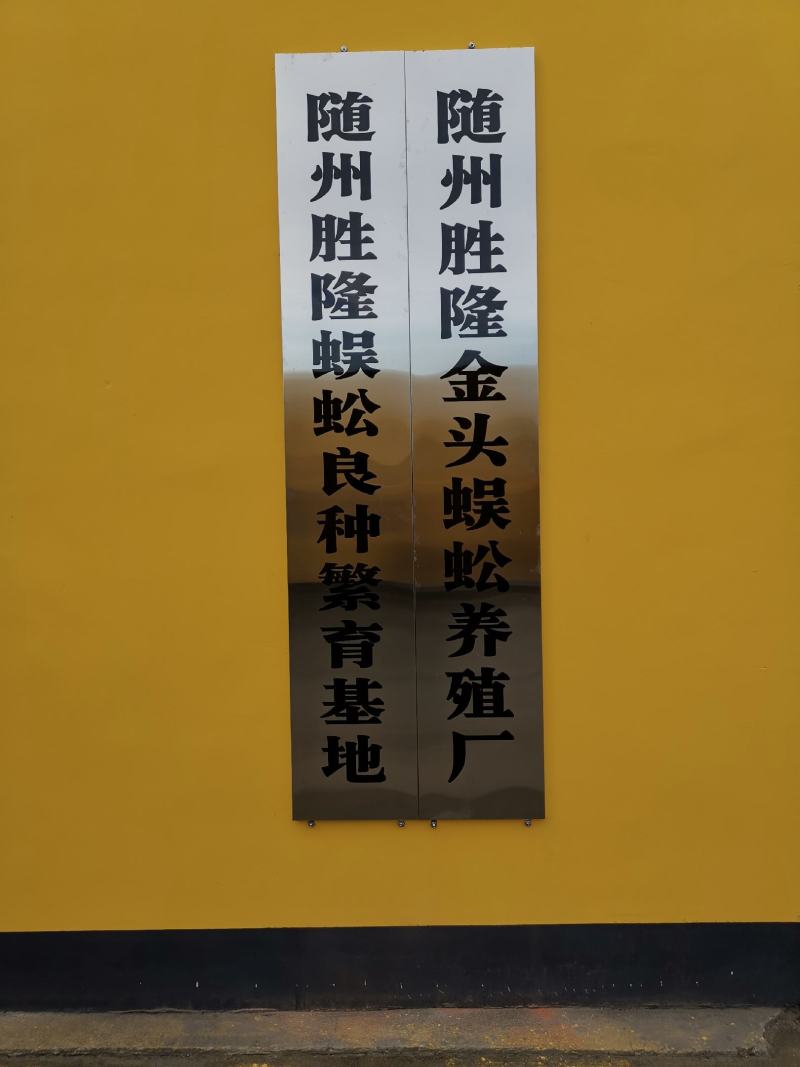 随州胜隆金头蜈蚣养殖厂
随州胜隆蜈蚣良种繁育基地